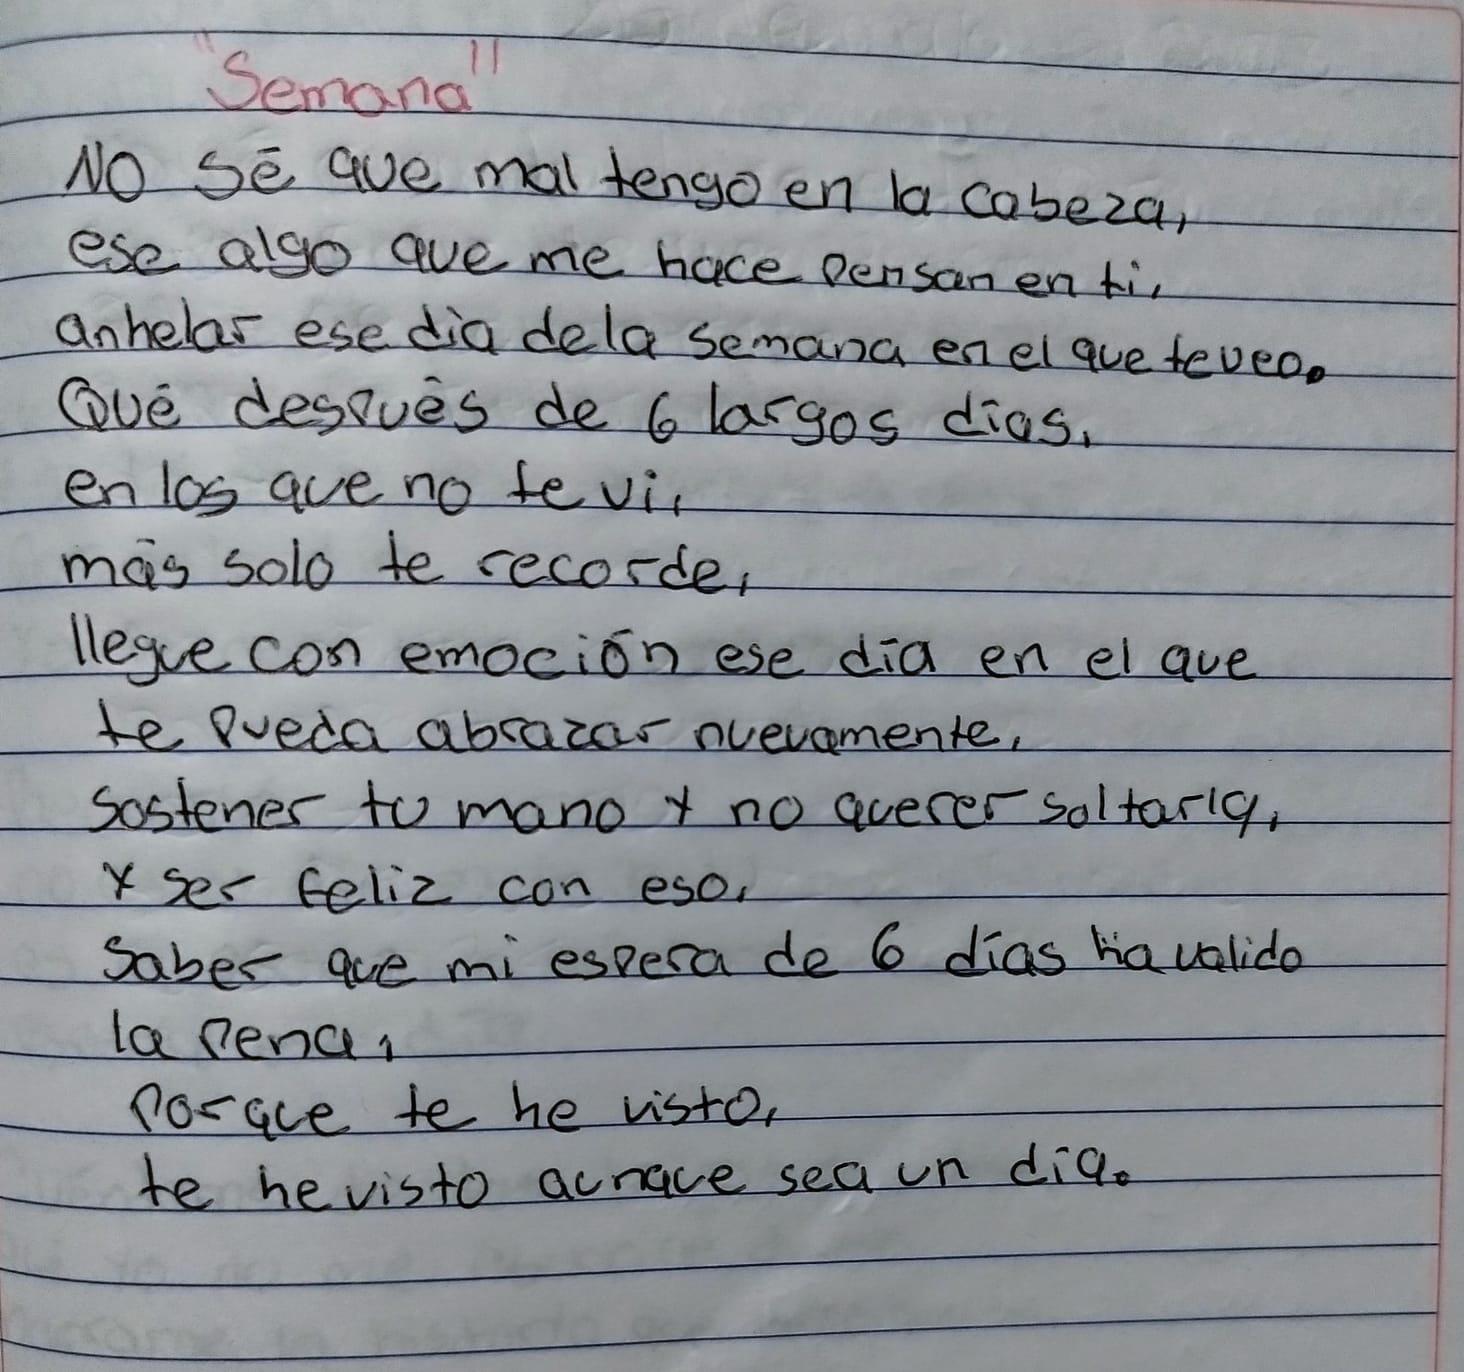 "Semana"
No sé que mal tengo en la cabeza,
ese algo que me hace pensan en ti,
anhelar ese dia de la semana en el que te veo.
Qué después de 6 largos dias,
en los que no te vi,
más solo te recorde,
llegue con emoción ese día en el que
te pueda abrazar nuevamente,
sostener tu mano y no querer soltarla,
y ser feliz con eso,
saber que mi espera de 6 días ha valido
la pena,
porque te he visto,
te he visto aunque sea un día.